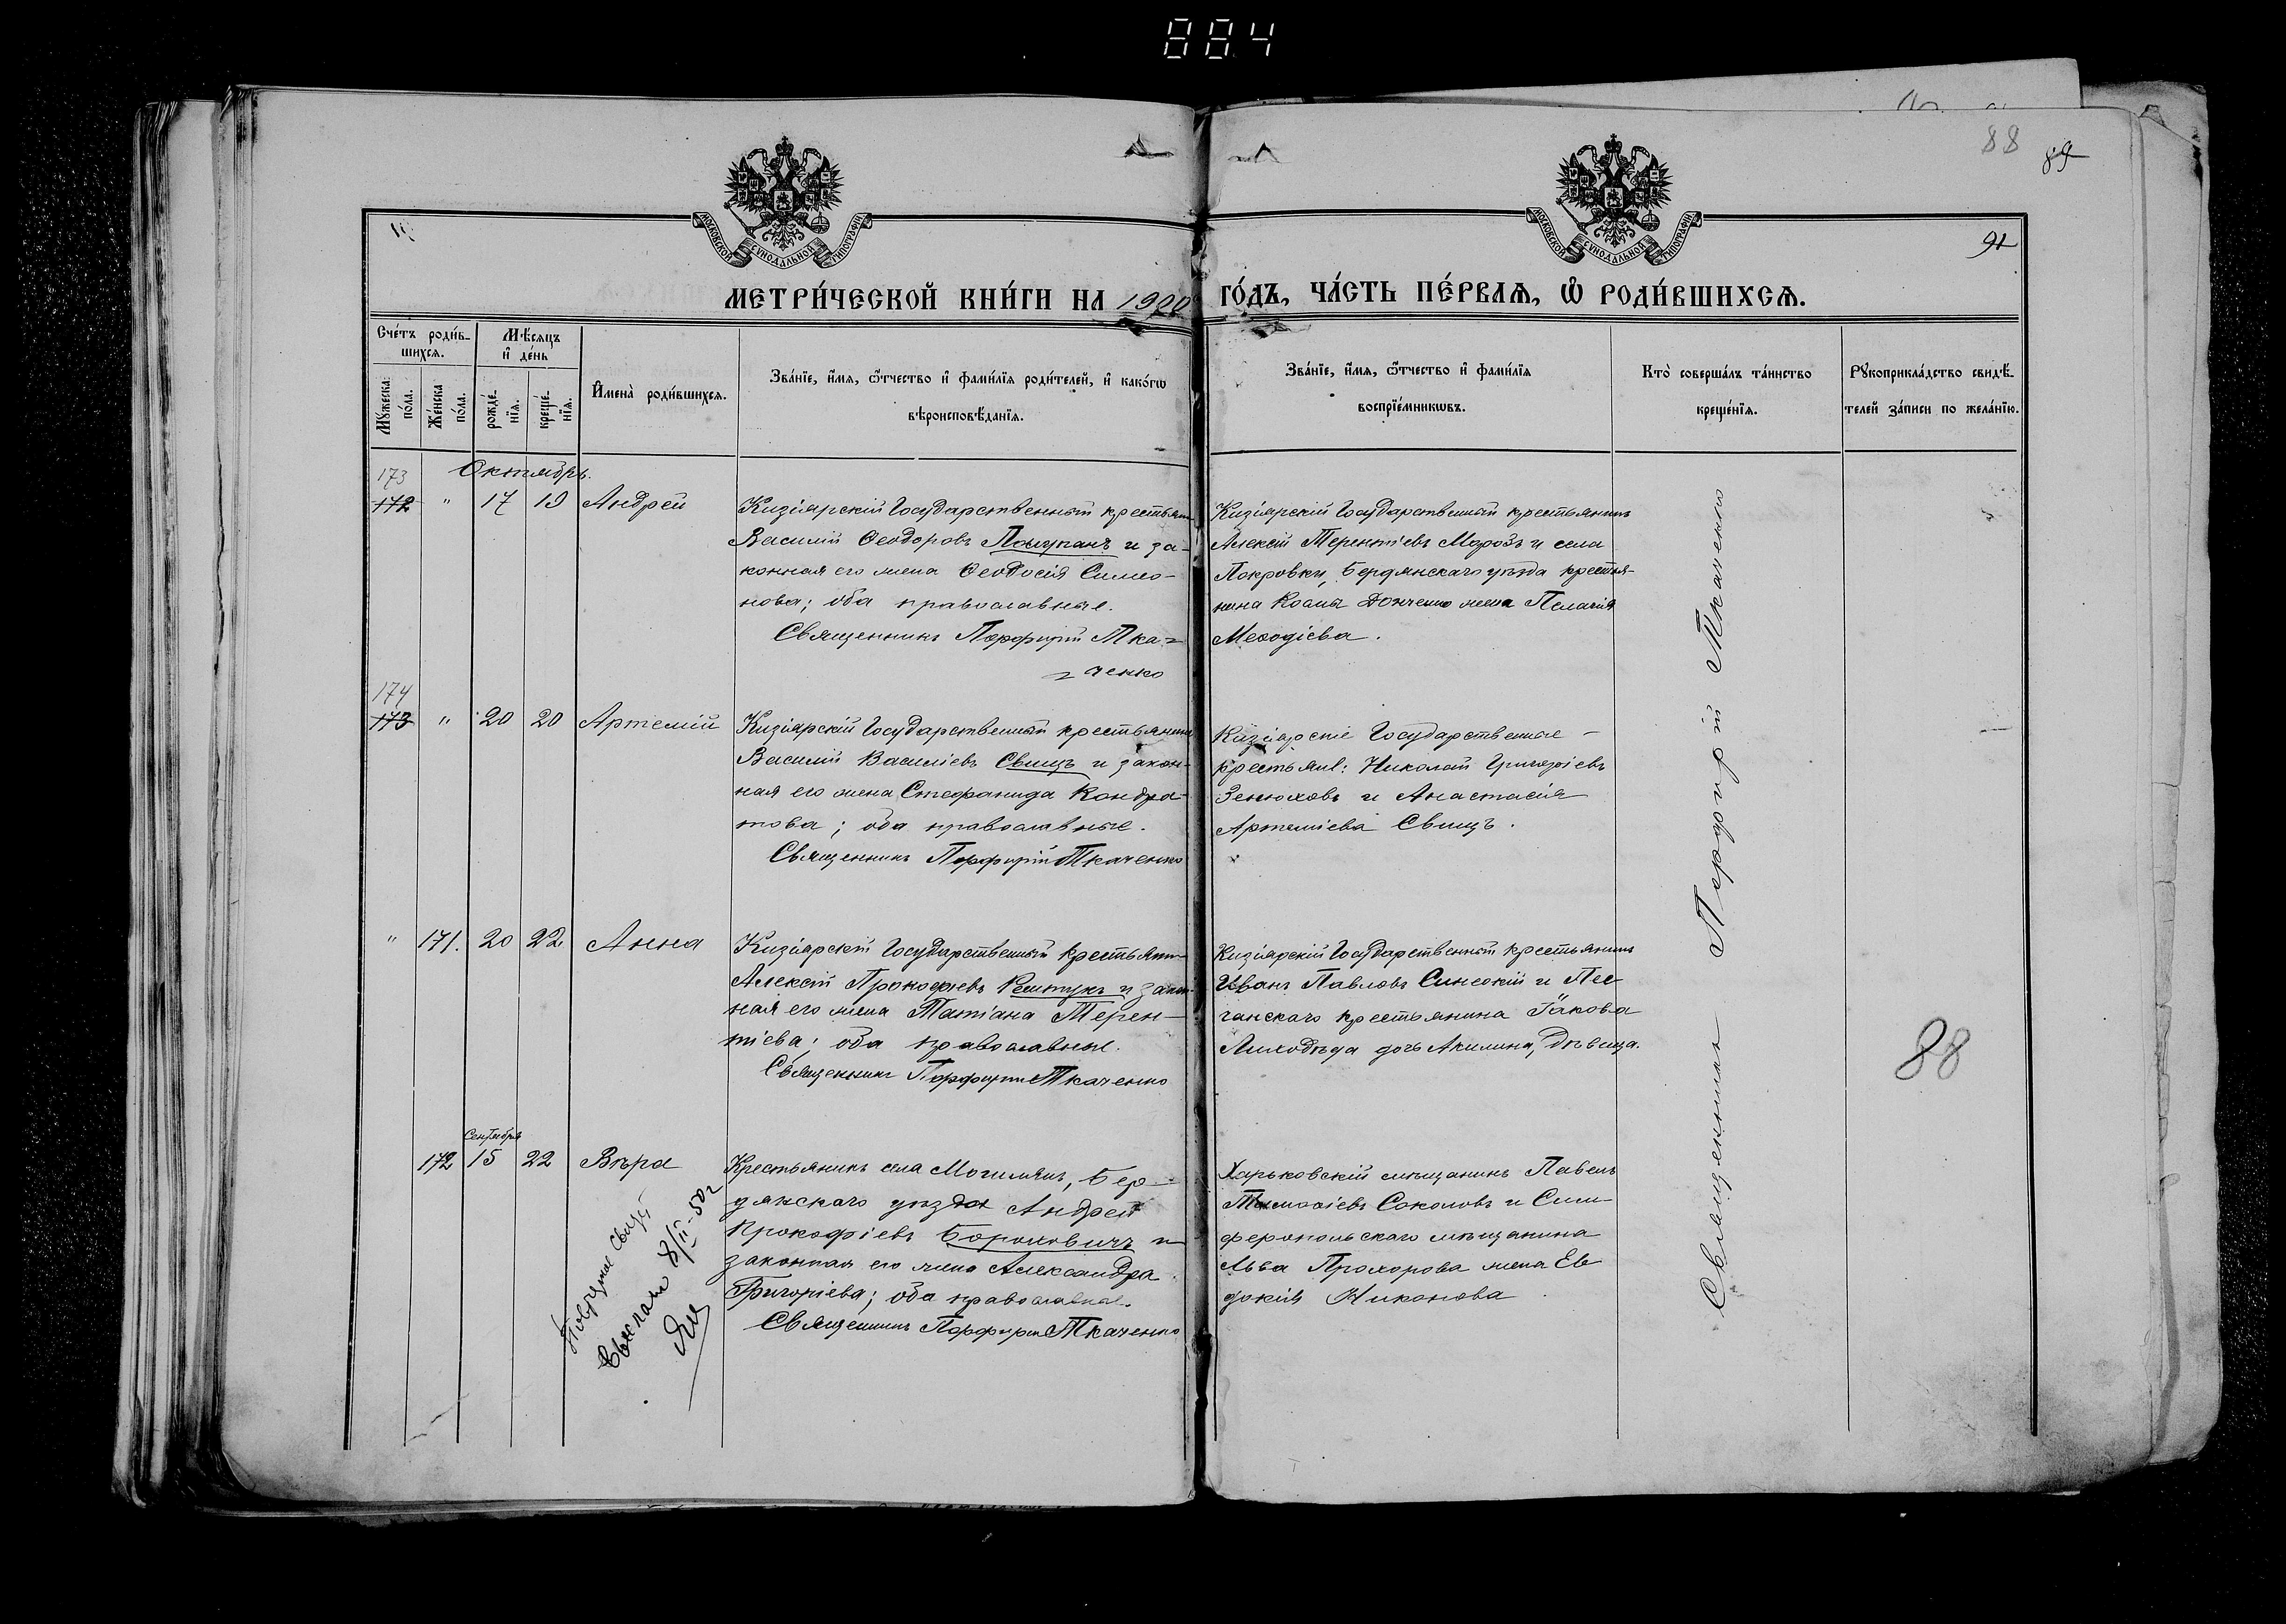 884
88
89
91
МОСКОВСКОЙ СѴНОДАЛЬНОЙ ТИПОГРАФІИ
МОСКОВСКОЙ СѴНОДАЛЬНОЙ ТИПОГРАФІИ
МЕТРИ́ЧЕСКОЙ КНИ́ГИ НА 1900 ГО́ДЪ, ЧА́СТЬ ПЕ́РВАЯ, Ѽ РОДИ́ВШИХСЯ.
Сче́тъ роди́в-
шихся.
Мѣ́сяцъ
и҆ де́нь
Мꙋ́жеска
по́ла.
Же́нска
по́ла.
рожде́-
нїя.
креще́-
нїя.
И҆мена̀ роди́вшихся.
Зва́нїе, и҆́мя, ѻ҆́тчество и҆ фами́лїя роди́телей, и҆ како́гѡ
вѣроисповѣ́данїя.
Зва́нїе, и҆́мя, ѻ҆́тчество и҆ фами́лїя
воспрїе́мникѡвъ.
Кто̀ соверша́лъ та́инство
креще́нїя.
Рꙋкоприкла́дство свидѣ́-
телей за́писи по жела́нїю.
Октябрь.
173
172 " 17 19 Андрей
Кизіярскій Государственный крестьян
Василій Ѳеодоровъ и за-
конная его жена Ѳеодосія Симео-
нова; оба православные.
Священникъ Порфирій Тка-
ченко
Кизіярскій Государственный крестьянинъ
Алексій Терентіевъ Морозъ и села
Покровки, Бердянскаго уѣзда крестья-
нина Космы Донченко жена Пелагія
Меѳодіева.
174
173 " 20 20 Артемій
Кизіярскій Государственный крестьянинъ
Василій Василіевъ Свищъ и закон-
ная его жена Стефанида Кондра-
това; оба православные.
Священникъ Порфирій Ткаченко
Кизіярскіе Государственные
крестьяне: Николай Григоріевъ
Зенюховъ и Анастасія
Артеміева Свищъ.
" 171. 20 22 Анна
Кизіярскій Государственный крестьянин
Алексій Прокофіевъ и закон-
ная его жена Татіана Терен-
тіева; оба православные.
Священникъ Порфирій Ткаченко
Кизіярскій Государственный крестьянинъ
Иванъ Павловъ Синеокій и Пес-
чанскаго крестьянина Іакова
Лиходѣда дочь Акилина, дѣвица.
88
Сентября
172 15 22 Вѣра
Крестьянинъ села Могилянъ, Бер-
дянскаго уѣзда Андрей
Прокофіевъ Бороховичъ и
законная его жена Александра
Григоріева; оба православные.
Священникъ Порфирій Ткаченко
Харьковскій мѣщанинъ Павелъ
Тимоѳіевъ Соколовъ и Сим-
феропольскаго мѣщанина
Льва Прохорова жена Ев-
докія Никонова.
Повторное свид.
выслано 8/II-50г
Священникъ Порфирій Ткаченко